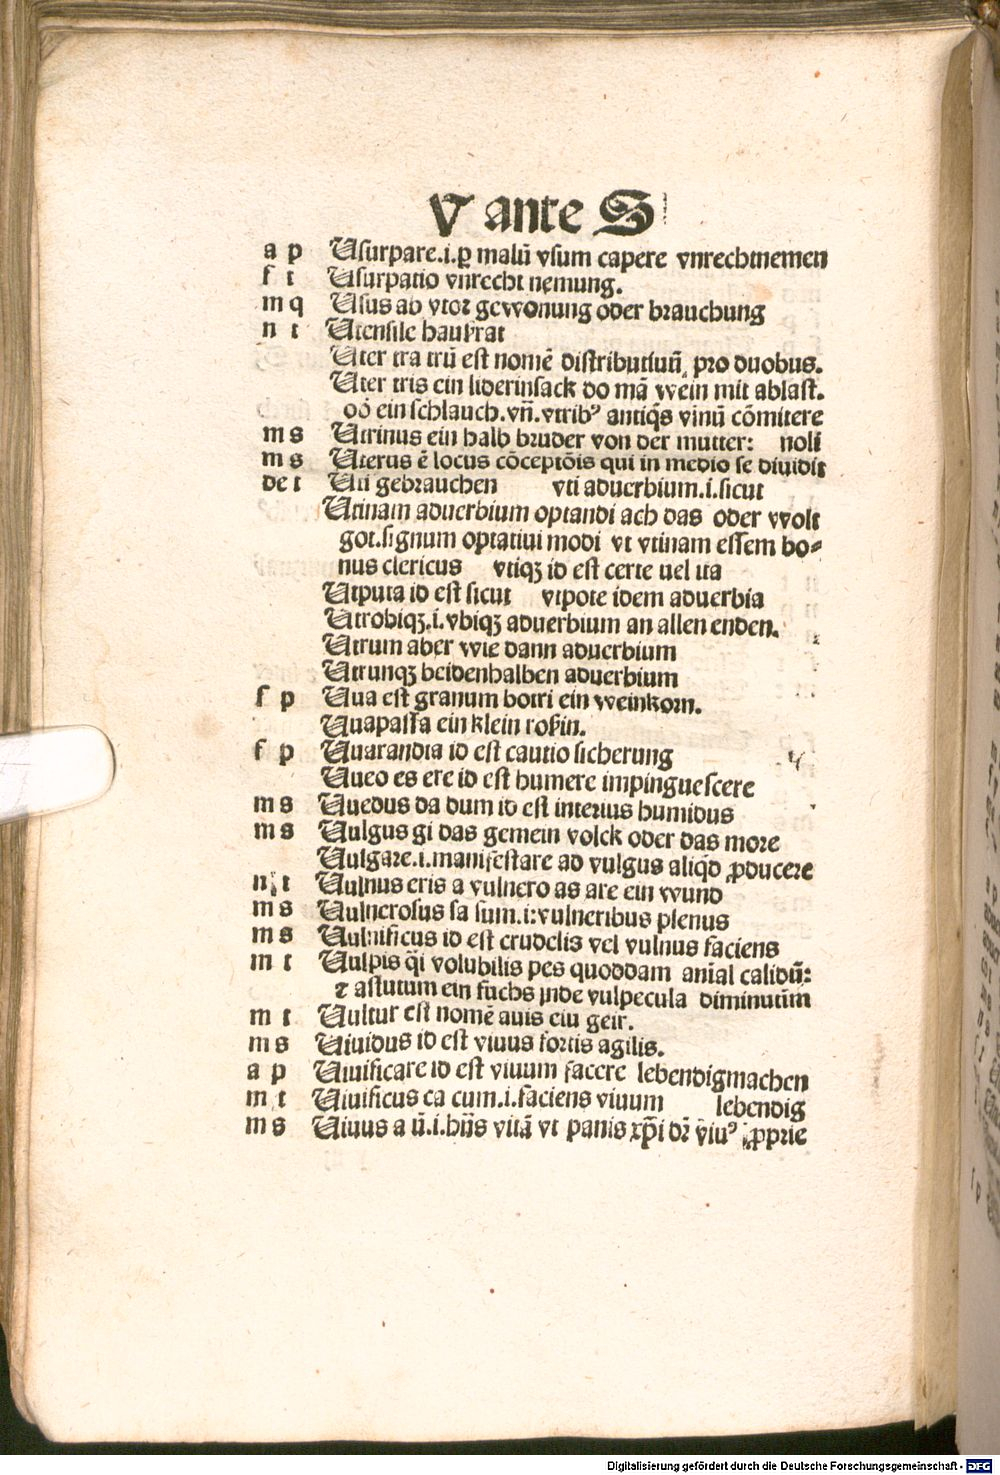 V ante S
a p Usurpare.i.ꝑ malū vsum capere vnrechtnemen
f t Usurpatio vnrecht nemung.
m q Usus ab vtor gewonung oder brauchung
n t Utensile haußrat
Uter tra trū est nomē distributiuū, pro duobus.
Uter tris ein liderinsack do mā wein mit ablast.
oð ein schlauch.vñ.vtribꝰ antiq̄s vinū cōmitere
m s Utrinus ein halb bruder von der mutter: noli
m s Uterus ē locus cōceptōis qui in medio se diuidit
de t Uti gebrauchen vti aduerbium.i.sicut
Utinam aduerbium optandi ach das oder wolt
got.signum optatiui modi vt vtinam essem bo⸗
nus clericus vtiqꝫ id est certe uel ita
Utputa id est sicut vtpote idem aduerbia
Utrobiqꝫ.i.vbiqꝫ aduerbium an allen enden.
Utrum aber wie dann aduerbium
Utrunqꝫ beidenhalben aduerbium
f p Uua est granum botri ein weinkorn.
Uuapassa ein klein rosin.
f p Uuarandia id est cautio sicherung
Uueo es ere id est humere impinguescere
m s Uuedus da dum id est interius humidus
m s Uulgus gi das gemein volck oder das more
Uulgare.i.manifestare ad vulgus aliqd̄ ꝓducere
n t Uulnus eris a vulnero as are ein wund
m s Uulnerosus sa sum.i:vulneribus plenus
m s Uulnificus id est crudelis vel vulnus faciens
m t Uulpis q̄i volubilis pes quoddam anīal calidū:
⁊ astutum ein fuchs inde vulpecula diminutūm
m t Uultur est nomē auis ein geir.
m s Uiuidus id est viuus fortis agilis.
a p Uiuificare id est viuum facere lebendigmachen
m t Uiuificus ca cum.i.faciens viuum lebendig
m s Uiuus a ū.i.hñs vitā vt panis xp̄i dr̄ viuꝰ ꝓprie
Digitalisierung gefördert durch die Deutsche Forschungsgemeinschaft - DFG